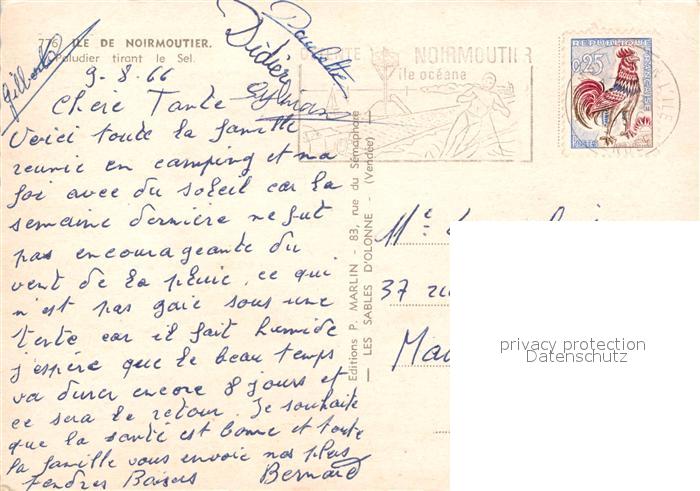 776 ILE DE NOIRMOUTIER.
Paludier tirant le Sel.
Gilberte
Paulette
Didier
Sylvian
9-8-66
Chère Tante
Voici toute la famille
réunie en camping et ma
foi avec du soleil car la
semaine dernière ne fut
pas encourageante du
vent de la pluie, ce qui
n'est pas gaie sous une
tente car il fait humide
j'espère que le beau temps
va durer encore 8 jours et
ce sera le retour. Je souhaite
que la santé est bonne et toute
la famille vous envoie nos plus
tendres Baisers Bernard
Editions P. MARLIN - 83, rue du Sémaphore
— LES SABLES D'OLONNE - (Vendée) —
NOIRMOUTIER
île océane
REPUBLIQUE FRANÇAISE
0,25
POSTES
Me
37 ru
Ma
privacy protection
Datenschutz